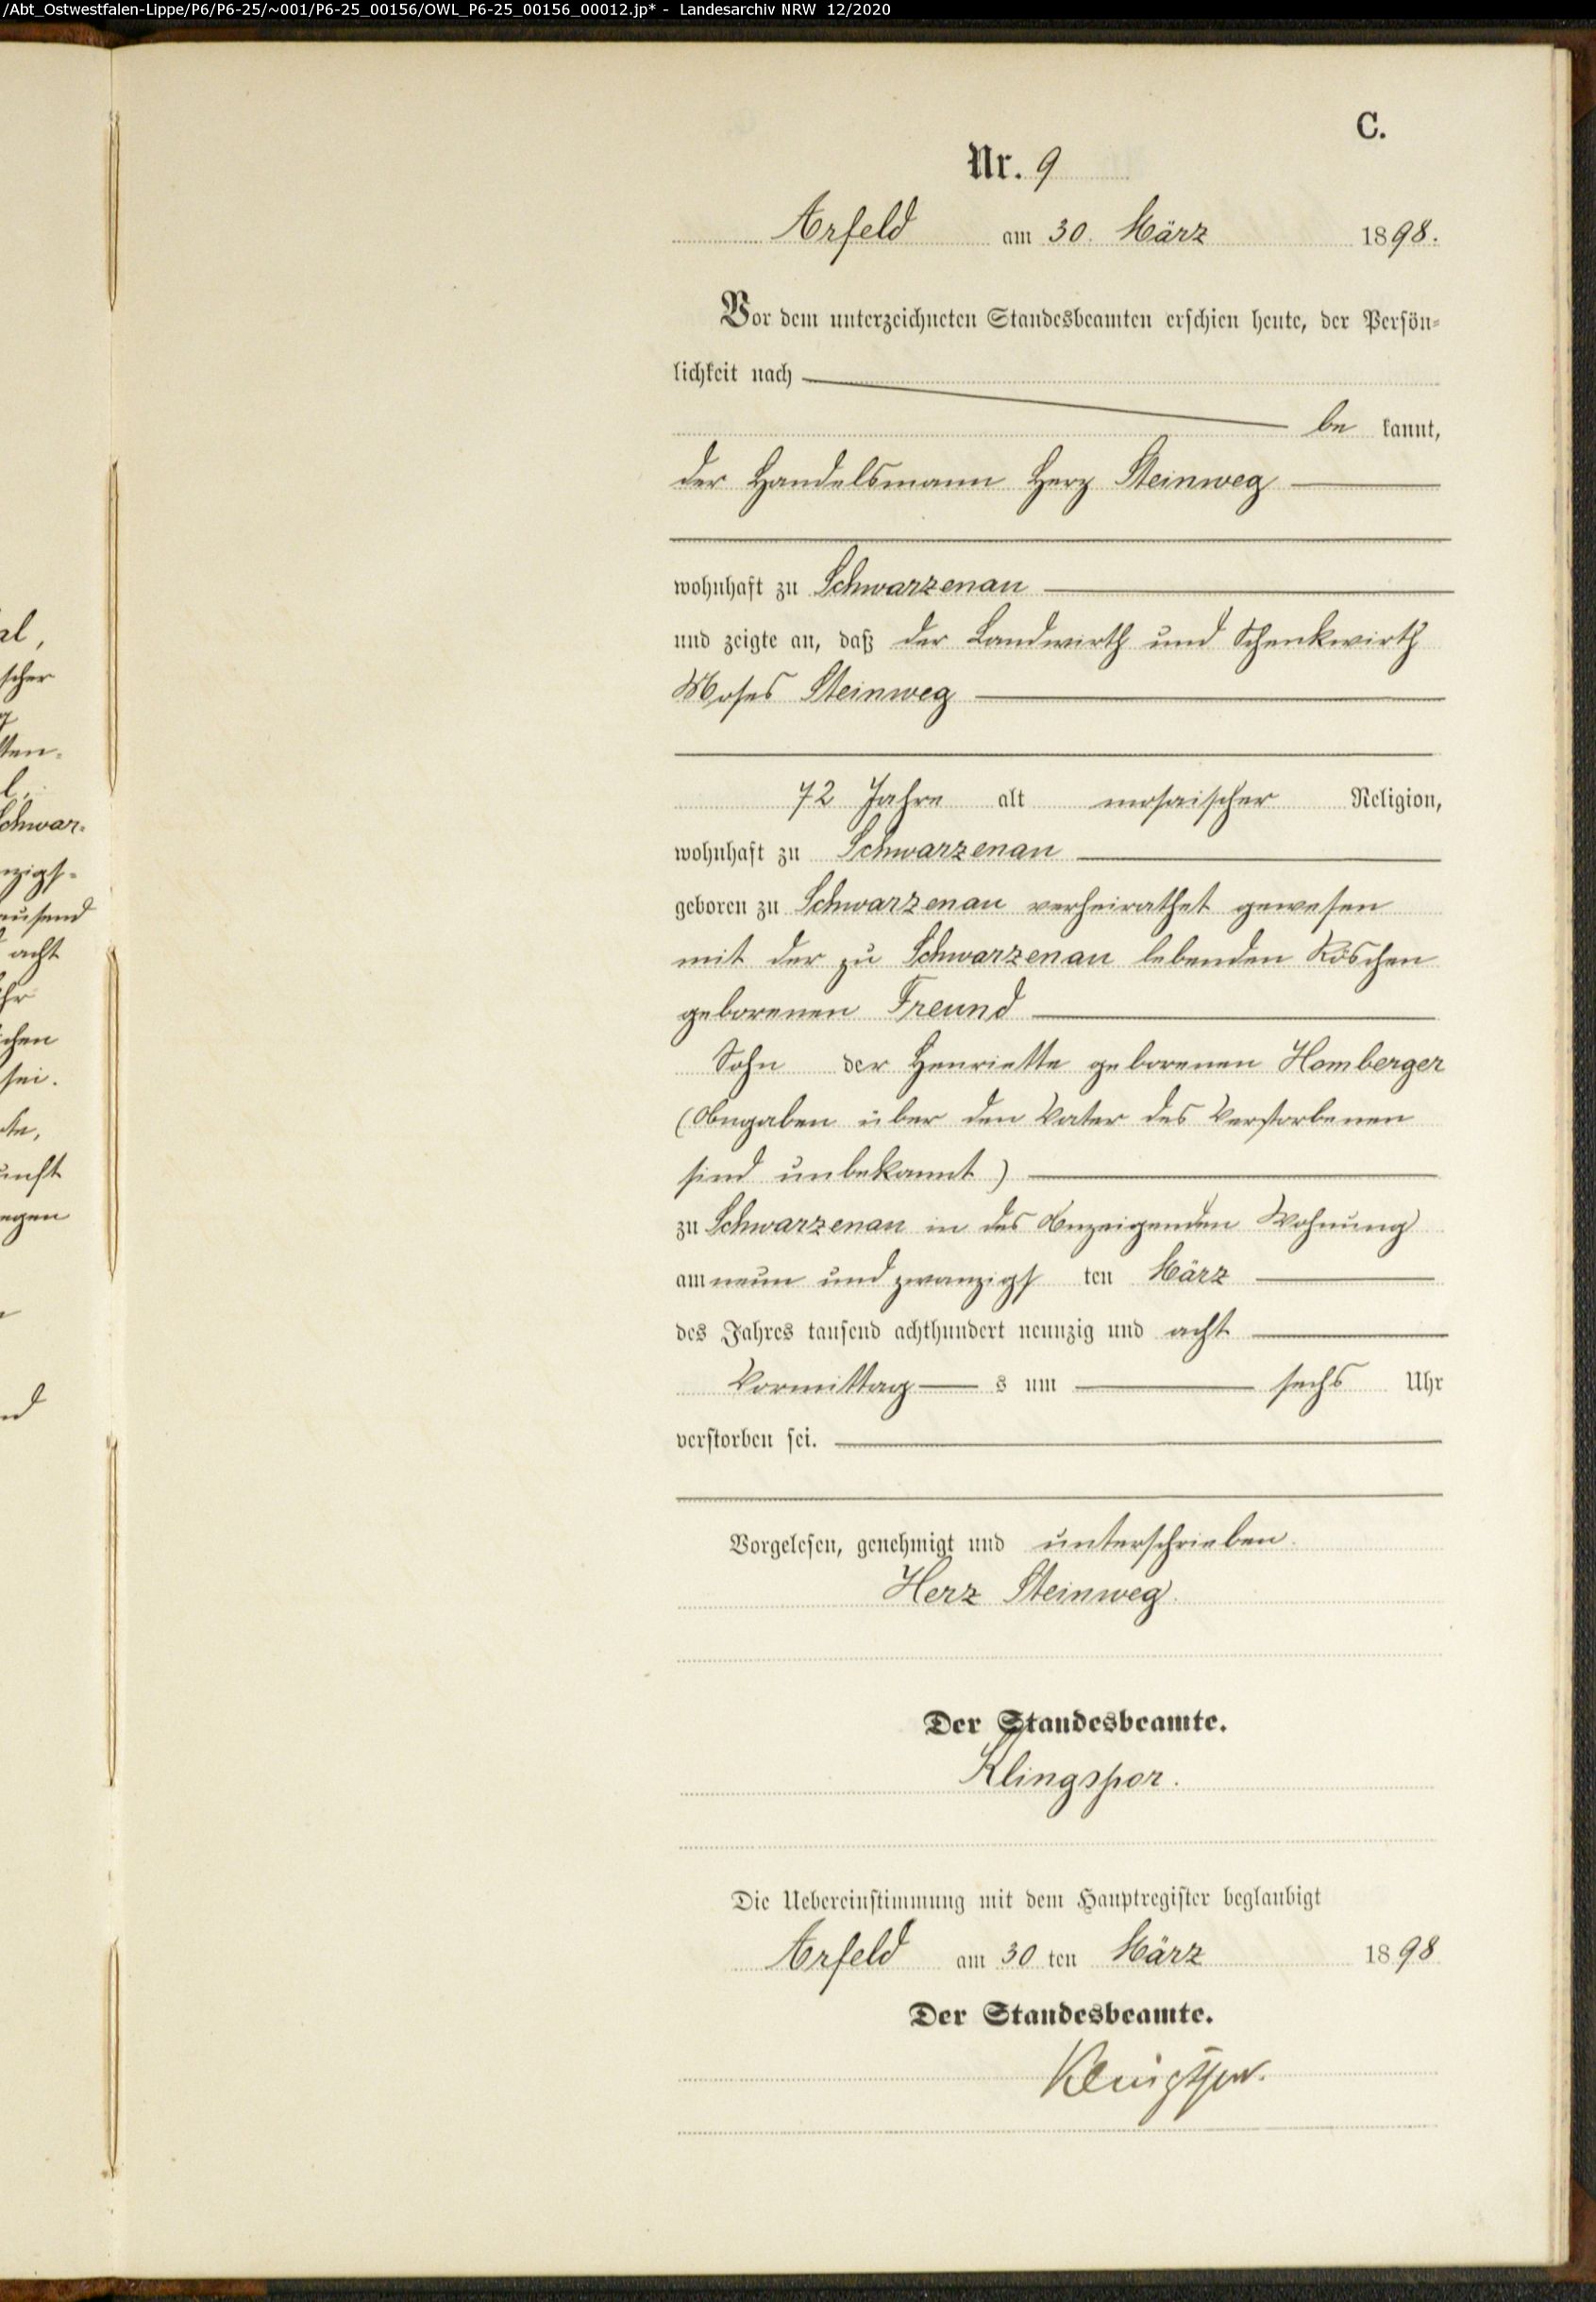 /Abt_Ostwestfalen-Lippe/P6/P6-25/~001/P6-25_00156/OWL_P6-25_00156_00012.jp* - Landesarchiv NRW 12/2020
al,
scher
ten.
l,
Schwar.
nzigs-
ausend
acht
hr
chen
sei.
te,
unft
egen
C.
Nr. 9
Arfeld am 30. März 1898.
Vor dem unterzeichneten Standesbeamten erschien heute, der Persön-
lichkeit nach
be kannt,
der Handelsmann Herz Steinweg
wohnhaft zu Schwarzenau
und zeigte an, daß der Landwirth und Schenkwirth
Moses Steinweg
72 Jahre alt mosaischer Religion,
wohnhaft zu Schwarzenau
geboren zu Schwarzenau verheirathet gewesen
mit der zu Schwarzenau lebenden Röschen
geborenen Freund
Sohn der Henriette geborenen Homberger
(Angaben über den Vater des Verstorbenen
sind unbekannt)
zu Schwarzenau in des Anzeigenden Wohnung
am neun und zwanzigs ten März
des Jahres tausend achthundert neunzig und acht
Vormittag s um sechs Uhr
verstorben sei.
Vorgelesen, genehmigt und unterschrieben.
Herz Steinweg.
Der Standesbeamte.
Klingspor.
Die Uebereinstimmung mit dem Hauptregister beglaubigt
Arfeld am 30 ten März 1898
Der Standesbeamte.
Klingspor.